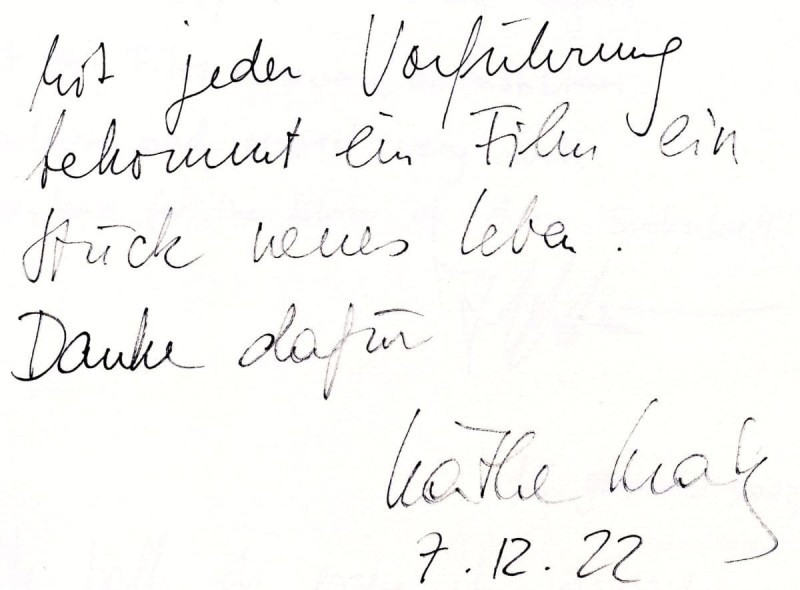 Mit jeder Vorführung
bekommt ein Film ein
Stück neues Leben.
Danke dafür
Käthe Kratz
7.12.22